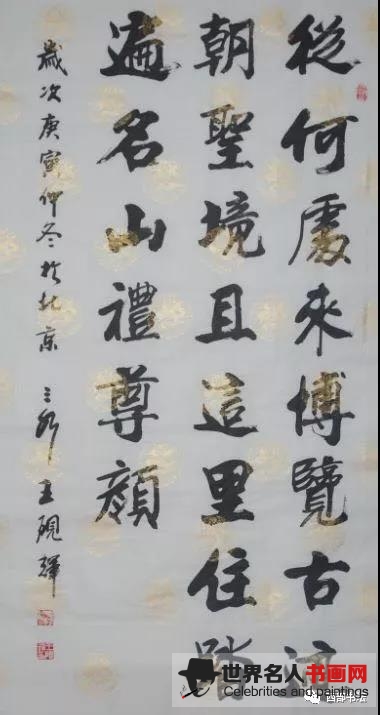 從何處來博覽古
朝聖境且這里住踏
遍名山禮尊顏
歲次庚寅仲冬於北京 王硯輝
世界名人书画网
Celebrities and paintings
西部书坛